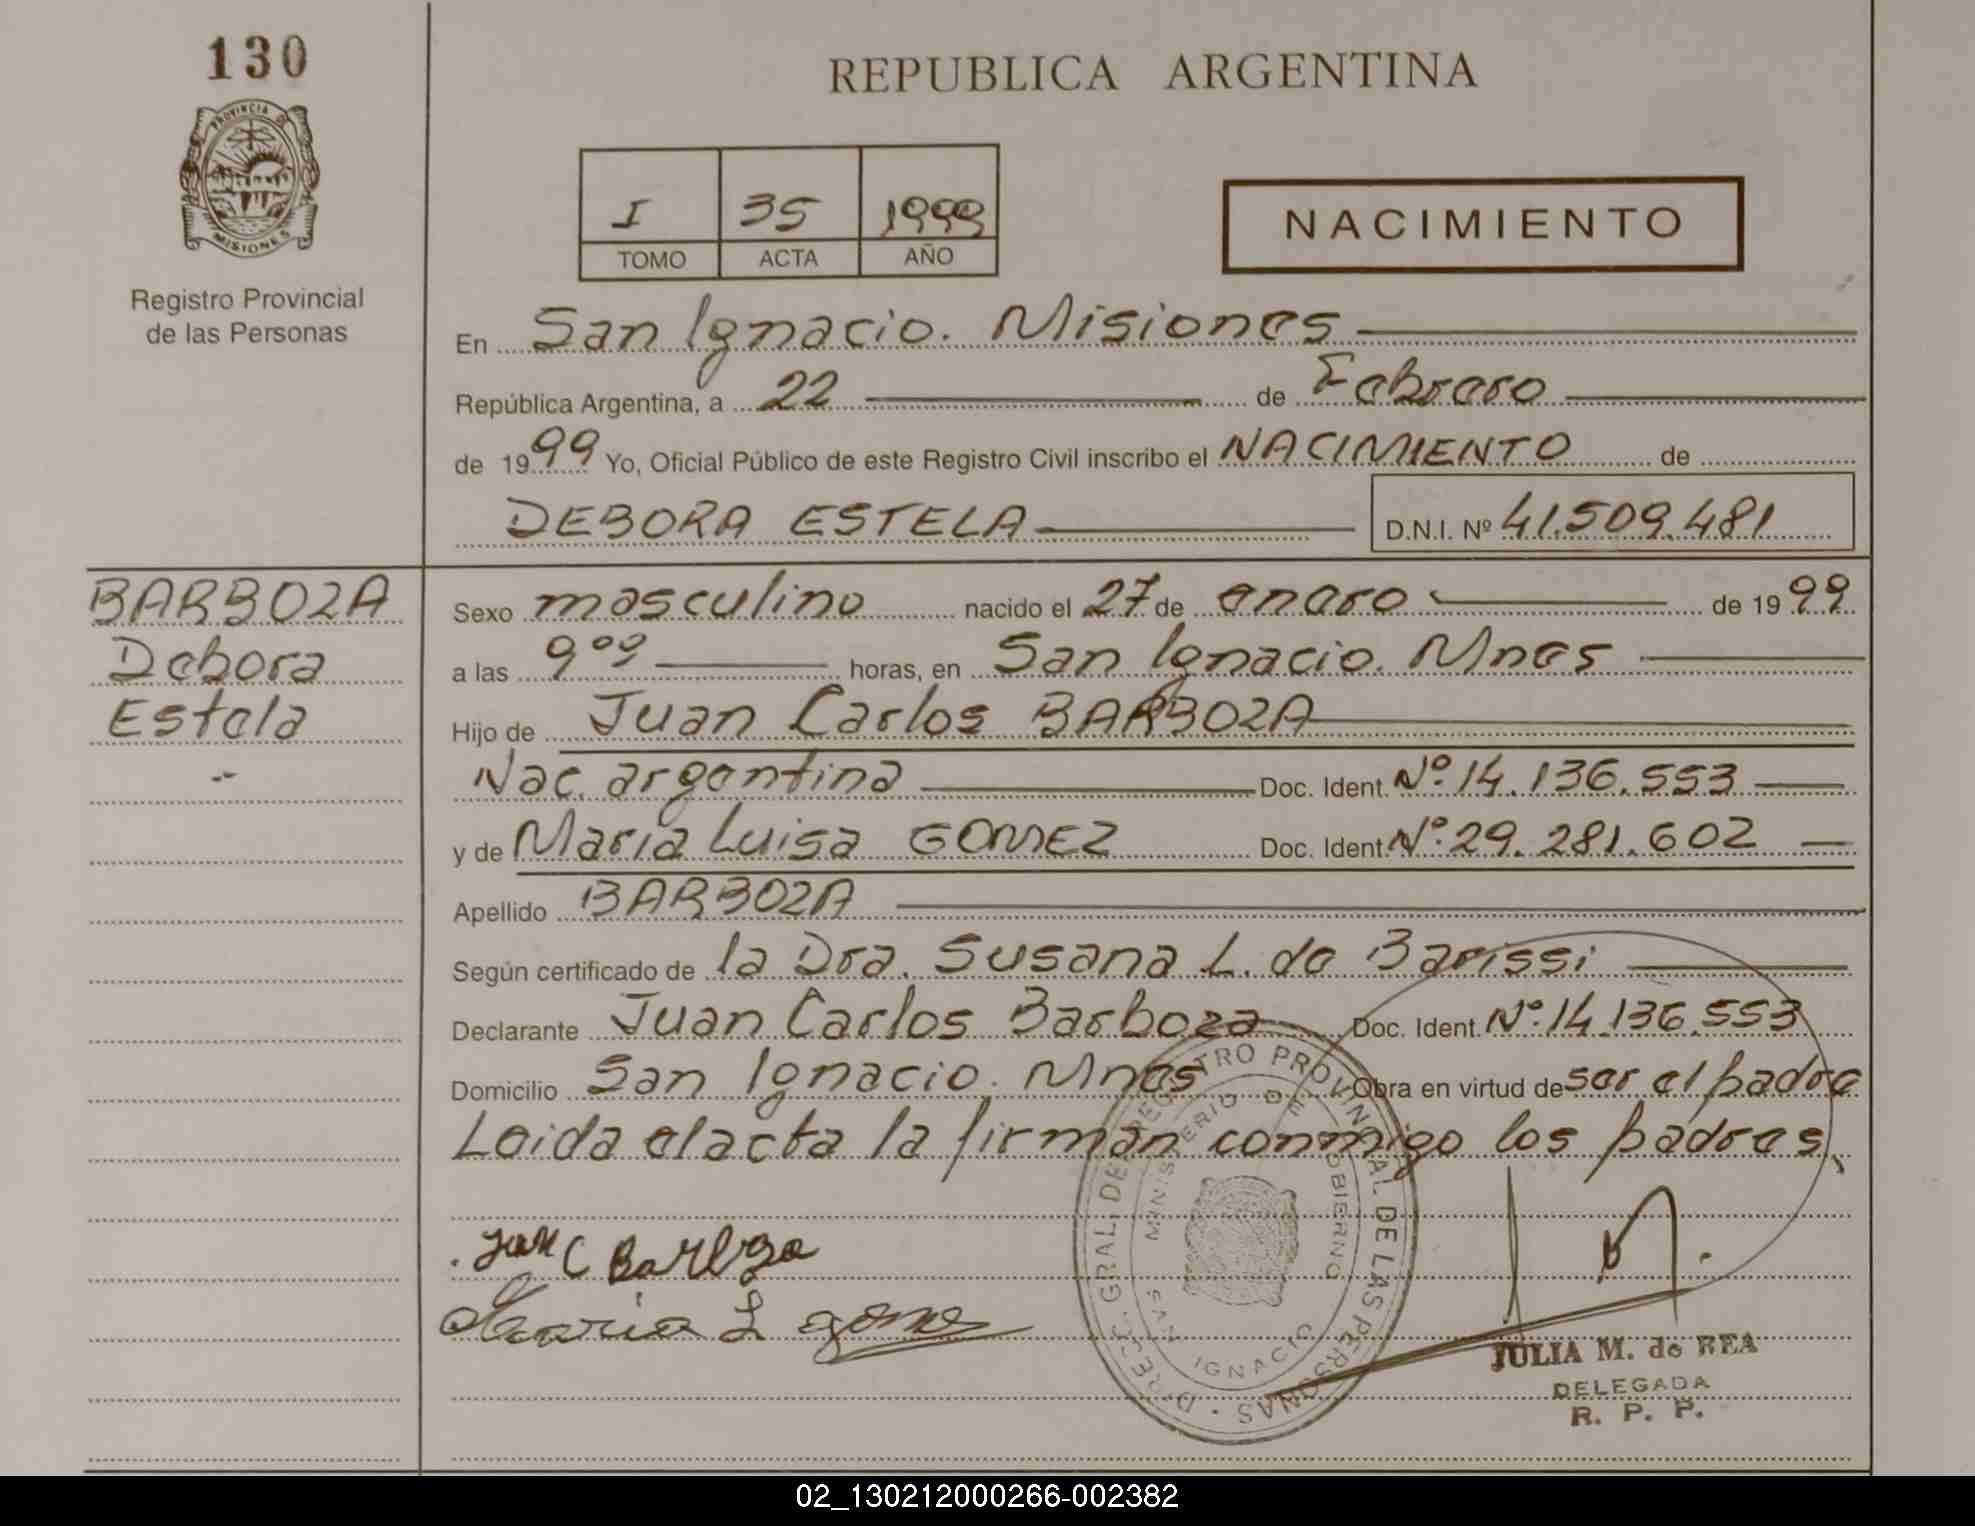 130
PROVINCIA DE
MISIONES
Registro Provincial
de las Personas
REPUBLICA ARGENTINA
I 35 1999
TOMO ACTA AÑO
NACIMIENTO
En San Ignacio. Misiones
República Argentina, a 22 de Febrero
de 1999 Yo, Oficial Público de este Registro Civil inscribo el NACIMIENTO de
DEBORA ESTELA D.N.I. Nº 41.509.481
BARBOZA
Debora
Estela
Sexo masculino nacido el 27 de enero de 1999
a las 9°° horas, en San Ignacio. Mnes
Hijo de Juan Carlos BARBOZA
Nac. argentina Doc. Ident. Nº 14.136.553
y de Maria Luisa GOMEZ Doc. Ident. Nº 29.281.602
Apellido BARBOZA
Según certificado de la Dra. Susana L. de Barissi
Declarante Juan Carlos Barboza Doc. Ident. Nº 14.136.553
Domicilio San Ignacio. Mnes Obra en virtud de ser el padre
Leida el acta la firman conmigo los padres.
Juan C Barboza
Maria L gomez
DIREC. GRAL. DEL REGISTRO PROVINCIAL DE LAS PERSONAS
MINISTERIO DE GOBIERNO
SAN IGNACIO
JULIA M. de REA
DELEGADA
R. P. P.
02_130212000266-002382